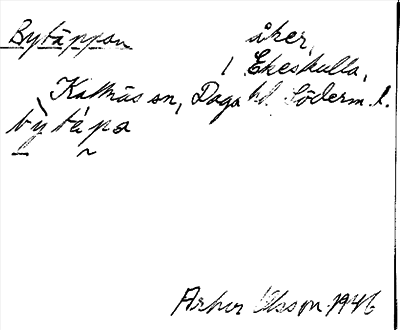 Bytäppan åker,
i Ekeskulla,
Kattnäs sn, Daga hd. Söderm. l.
bỳtápa
Arhur Olsson 1946